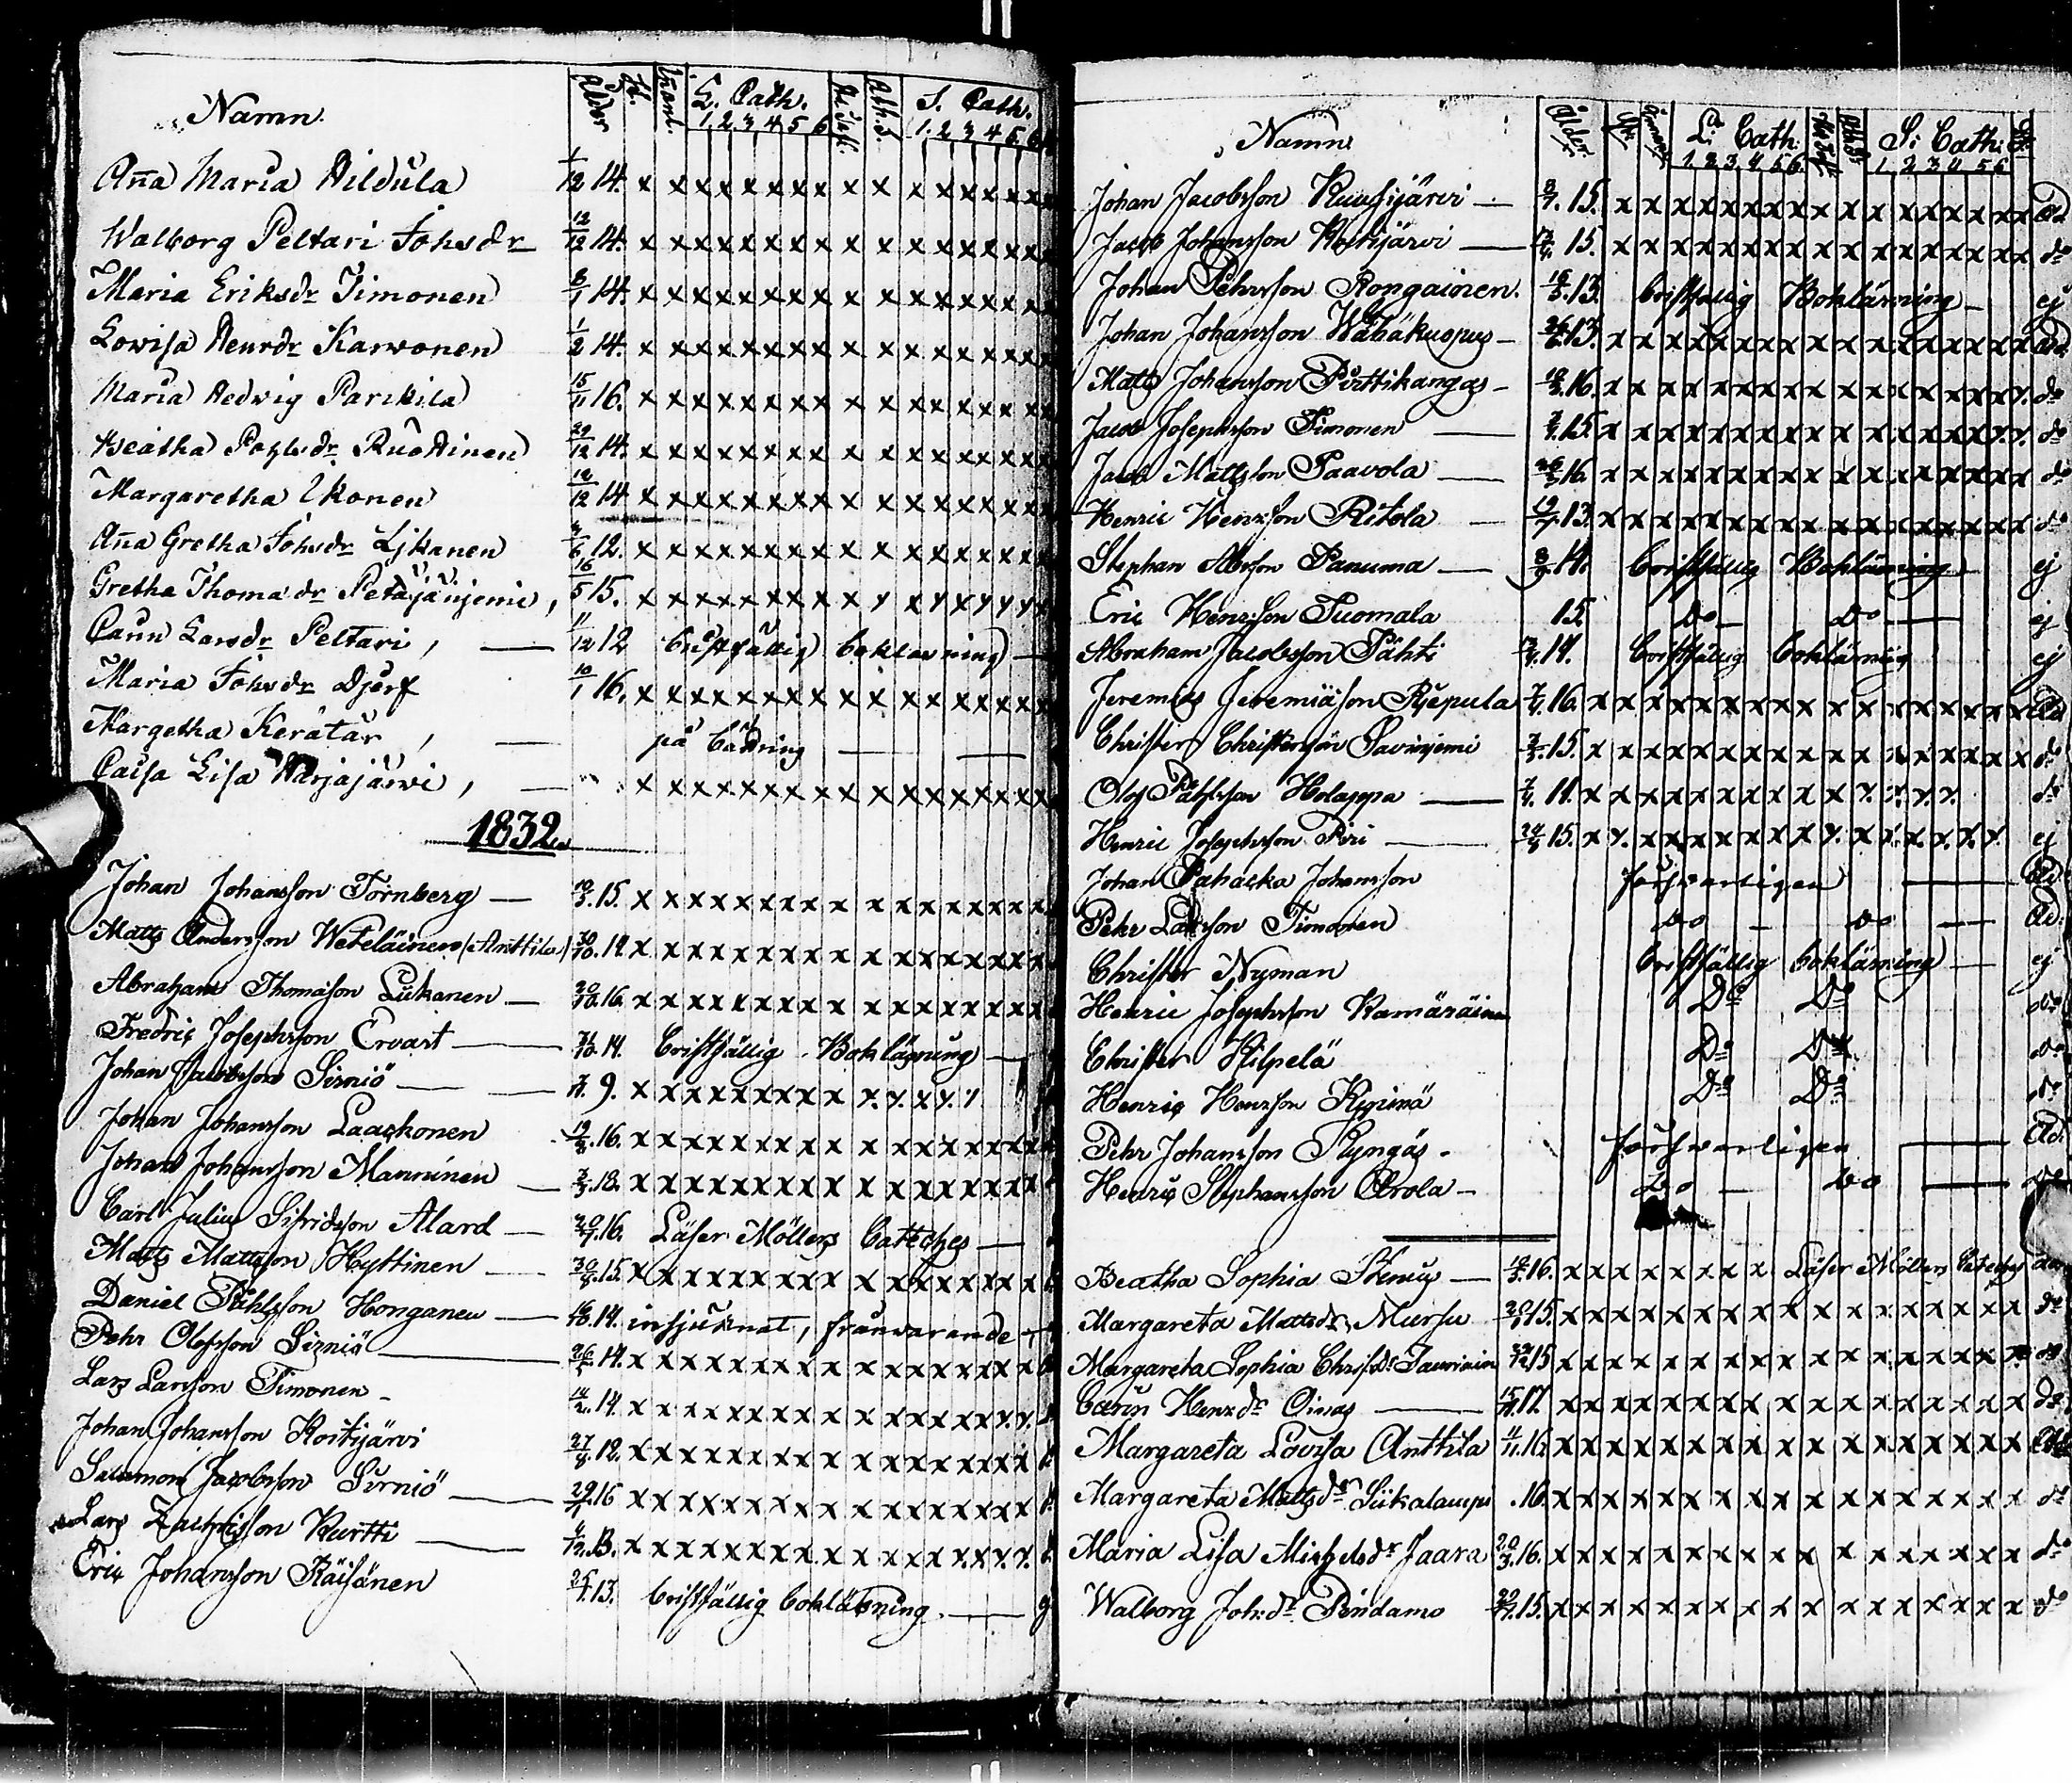 Namn. Ålder L. Cath. S. Cath.
1. 2. 3. 4. 5. 6 1. 2. 3. 4. 5. 6
Anna Maria Hildula 1/12 14. x x x x x x x x x x x x x x x x
Walborg Peltari Johsdr 12/12 14. x x x x x x x x x x x x x x x x
Maria Eriksdr Timonen 8/1 14. x x x x x x x x x x x x x x x x
Lovisa Henrdr Karvonen 1/2 14. x x x x x x x x x x x x x x x x
Maria Hedvig Parikila 15/11 16. x x x x x x x x x x x x x x x x
Beatha Pahlsdr Ruottinen 29/12 14. x x x x x x x x x x x x x x x x
Margaretha Ikonen 12/12 14 x x x x x x x x x x x x x x x x
Anna Gretha Johsdr Lykanen 4/6 12. x x x x x x x x x x x x x x x x
Gretha Thomadr Petäjäniemi, 16/5 15. x x x x x x x x x y x y x y y y
Caun Larsdr Peltari, — 11/12 12 bristfällig boklärning —
Maria Johsdr Djerf 10/1 16. x x x x x x x x x x x x x x x x
Margetha Kerätär, — på bättring —
Caisa Lisa Harjajärvi, — x x x x x x x x x x x x x x x x
1832.
Johan Johansson Törnberg — 10/3. 15. x x x x x x x x x x x x x x x x
Matts Andersson Weteläinen (Anttila) 30/10. 14 x x x x x x x x x x x x x x x x
Abraham Thomason Lukanen — 20/10. 16. x x x x x x x x x x x x x x x x
Fredric Josephsson Ervast — 31/10. 14. bristfällig Boklärning —
Johan Jacobsson Sirniö — 9. x x x x x x x x x y. y. x y. y
Johan Johansson Laaskonen 19/2. 16. x x x x x x x x x x x x x x x x
Johan Johansson Manninen — 18. x x x x x x x x x x x x x x x x
Carl Julius Sifridsson Alard — 20/7. 16. Läser Möllers Catteches —
Matts Mattsson Hyttinen — 30/8. 15. x x x x x x x x x x x x x x x x
Daniel Påhlsson Honganen — 16/10. 14. insjuknat, frånvarande —
Pehr Olofsson Sirniö — 26/5. 14. x x x x x x x x x x x x x x x x
Lars Larsson Timonen - 14/2. 14. x x x x x x x x x x x x x x y. y.
Johan Johansson Kostijärvi 27/8. 12. x x x x x x x x x x x x x x x x
Salamon Jacobsson Sirniö — 29/7. 16 x x x x x x x x x x x x x x x x
Lars Zachrisson Kurtti — 4/12. 13. x x x x x x x x x x x x y. x y. y.
Eric Johansson Räisänen 25/7. 13. bristfällig boklärning. —
Namn. Ålder L. Cath: S: Cath:
1. 2. 3. 4. 5 6. 1. 2. 3 4 5 6
Johan Jacobsson Kuusijärvi — 8/7. 15. x x x x x x x x x x x x x x x x Ad
Jacob Johansson Kostijärvi — 15. x x x x x x x x x x x x x x x x do
Johan Pehrsson Rongainen. 16/3. 13. bristfällig Boklärning — ej
Johan Johansson Wähäkuopus — 26/6. 13. x x x x x x x x x x x x x x x x Ad
Matts Johansson Pirttikangas — 16. x x x x x x x x x x x x x x x y. do
Jacob Josephsson Timonen — 15. x x x x x x x x x x x x x x y. y. do
Jacob Mattsson Paavola — 16. x x x x x x x x x x x x x x x x do
Henric Henrsson Ritola — 19/7. 13. x x x x x x x x x x x x x x x x do
Stephan Abrsson Panuma — 14. bristfällig Boklärning ej
Eric Henrsson Tuomala 15. Do — Do — ej
Abraham Jacobsson Pähti 14. bristfällig boklärning ej
Jeremias Jeremiäson Riepula 16. x x x x x x x x x x x x x x x x Ad
Christer Christersson Savinjemi 15. x x x x x x x x x x x x x x x x do
Olof Påhlsson Holappa — 11. x x x x x x x x x x x y. y. y. y. do
Henric Josephsson Piri — 24/8 15. x y. x x x x x x x y. x x. x. x. y. y. ej
Johan Pahaska Johansson försvarligen — Ad.
Pehr Larsson Timonen Do — Do — Ad.
Christer Nyman bristfällig boklärning — ej
Henric Josephsson Kamäräinen Do Do do
Christer Kilpelä Do Do do
Henric Henrsson Kynimä Do Do do
Pehr Johansson Kyngäs - försvarligen — Ad.
Henric Stephansson Orola — Do — Do — do
Beatha Sophia Stenius — 16. x x x x x x x x Läser Möllers Cateches
Margareta Mattsdr Mursu 20/9 15. x x x x x x x x x x x x x x x x do
Margareta Sophia Christdr Tauriain 15 x x x x x x x x x x x x x x x x do
Carin Henrdr Oinas — 15/8. 17. x x x x x x x x x x x x x x x x do
Margareta Lovisa Anttila 11/11. 16. x x x x x x x x x x x x x x x x
Margareta Mattsdr Siikalampi . 16. x x x x x x x x x x x x x x x x do
Maria Lisa Michelsdr Jaara 20/3. 16. x x x x x x x x x x x x x x x x do
Walborg Joh:dr Pindamo 15. x x x x x x x x x x x x x x x x do